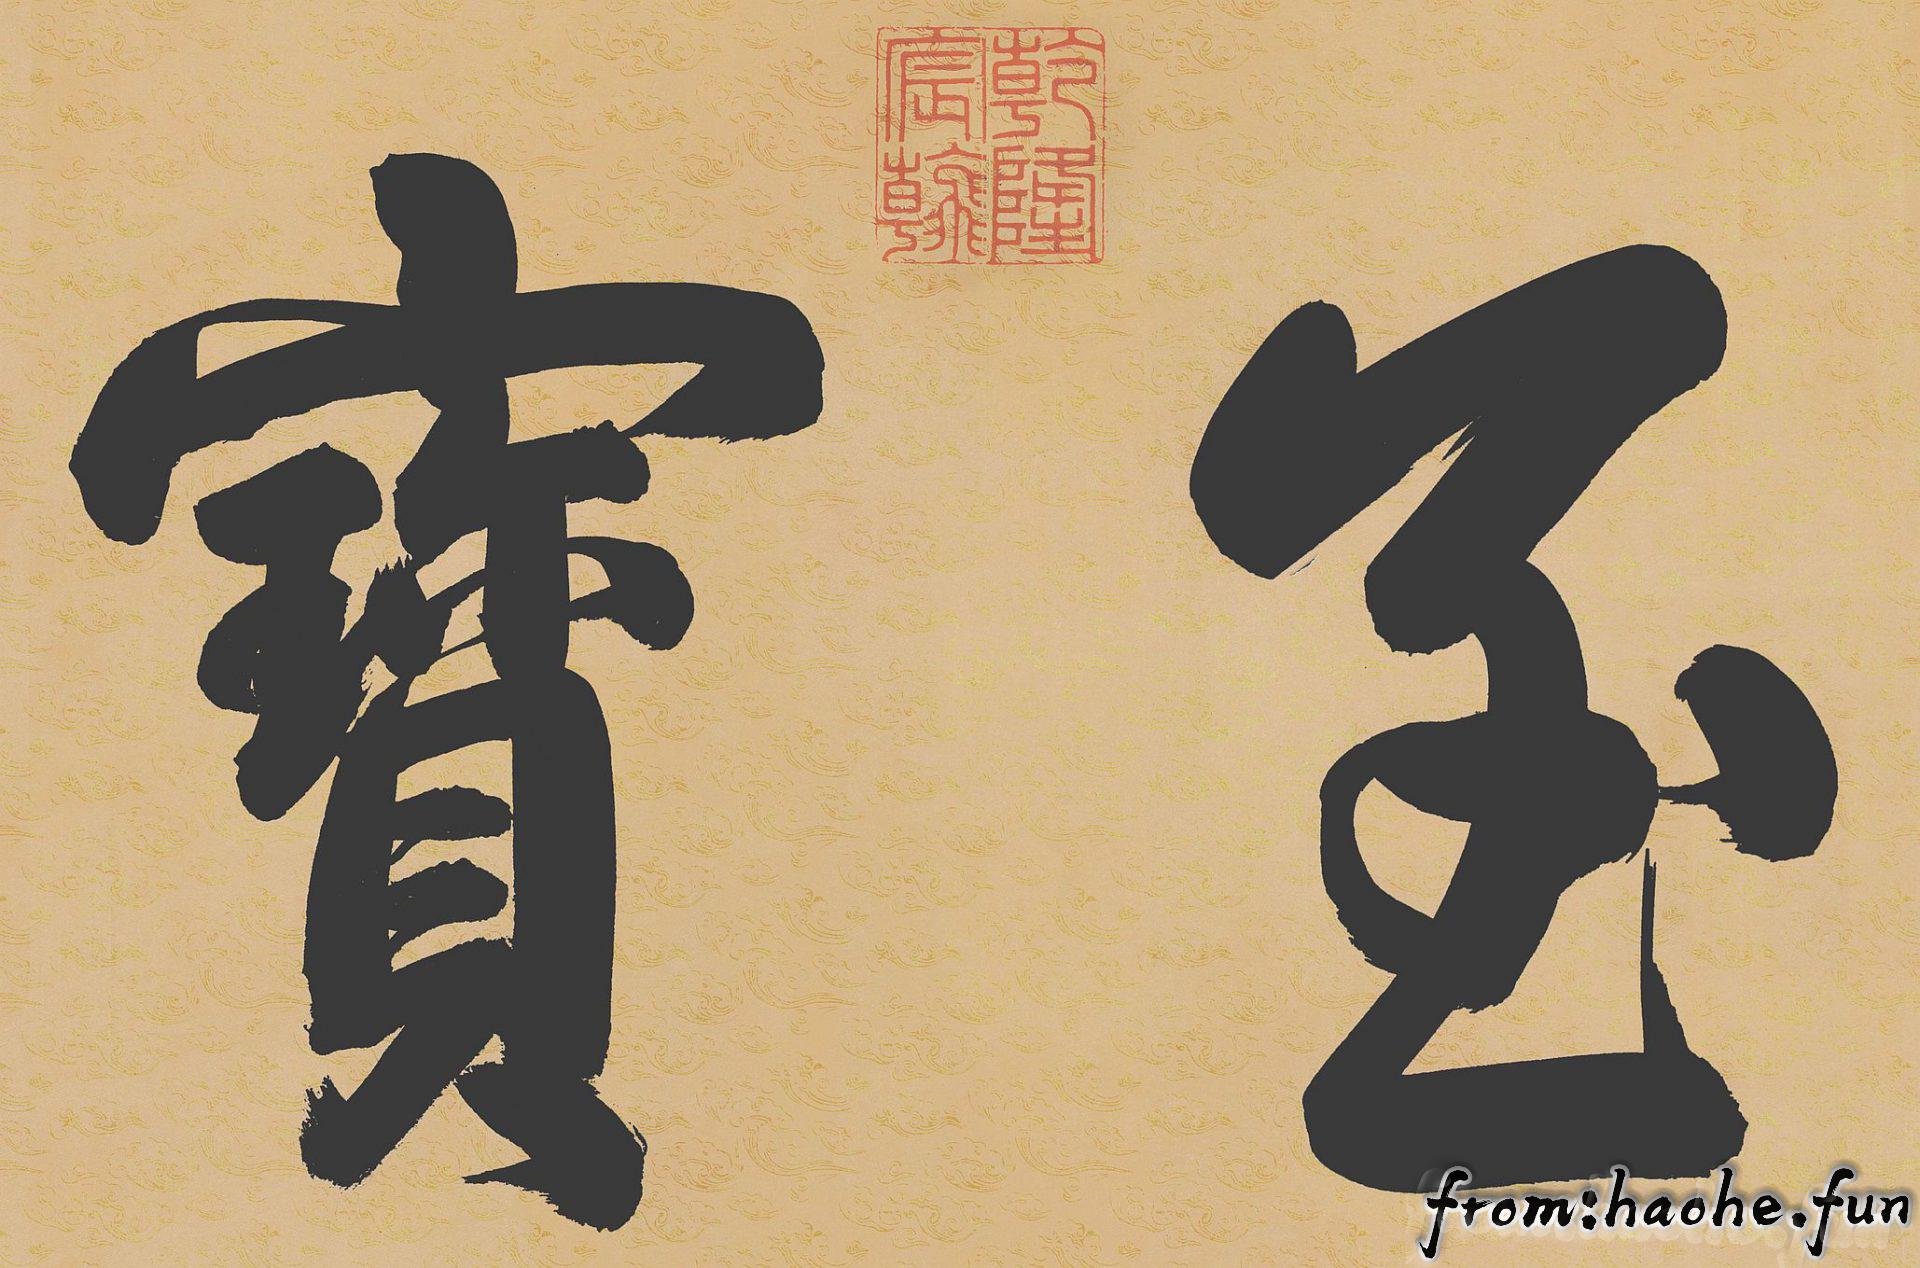 乾隆
宸翰
至寶
from:haohe.fun